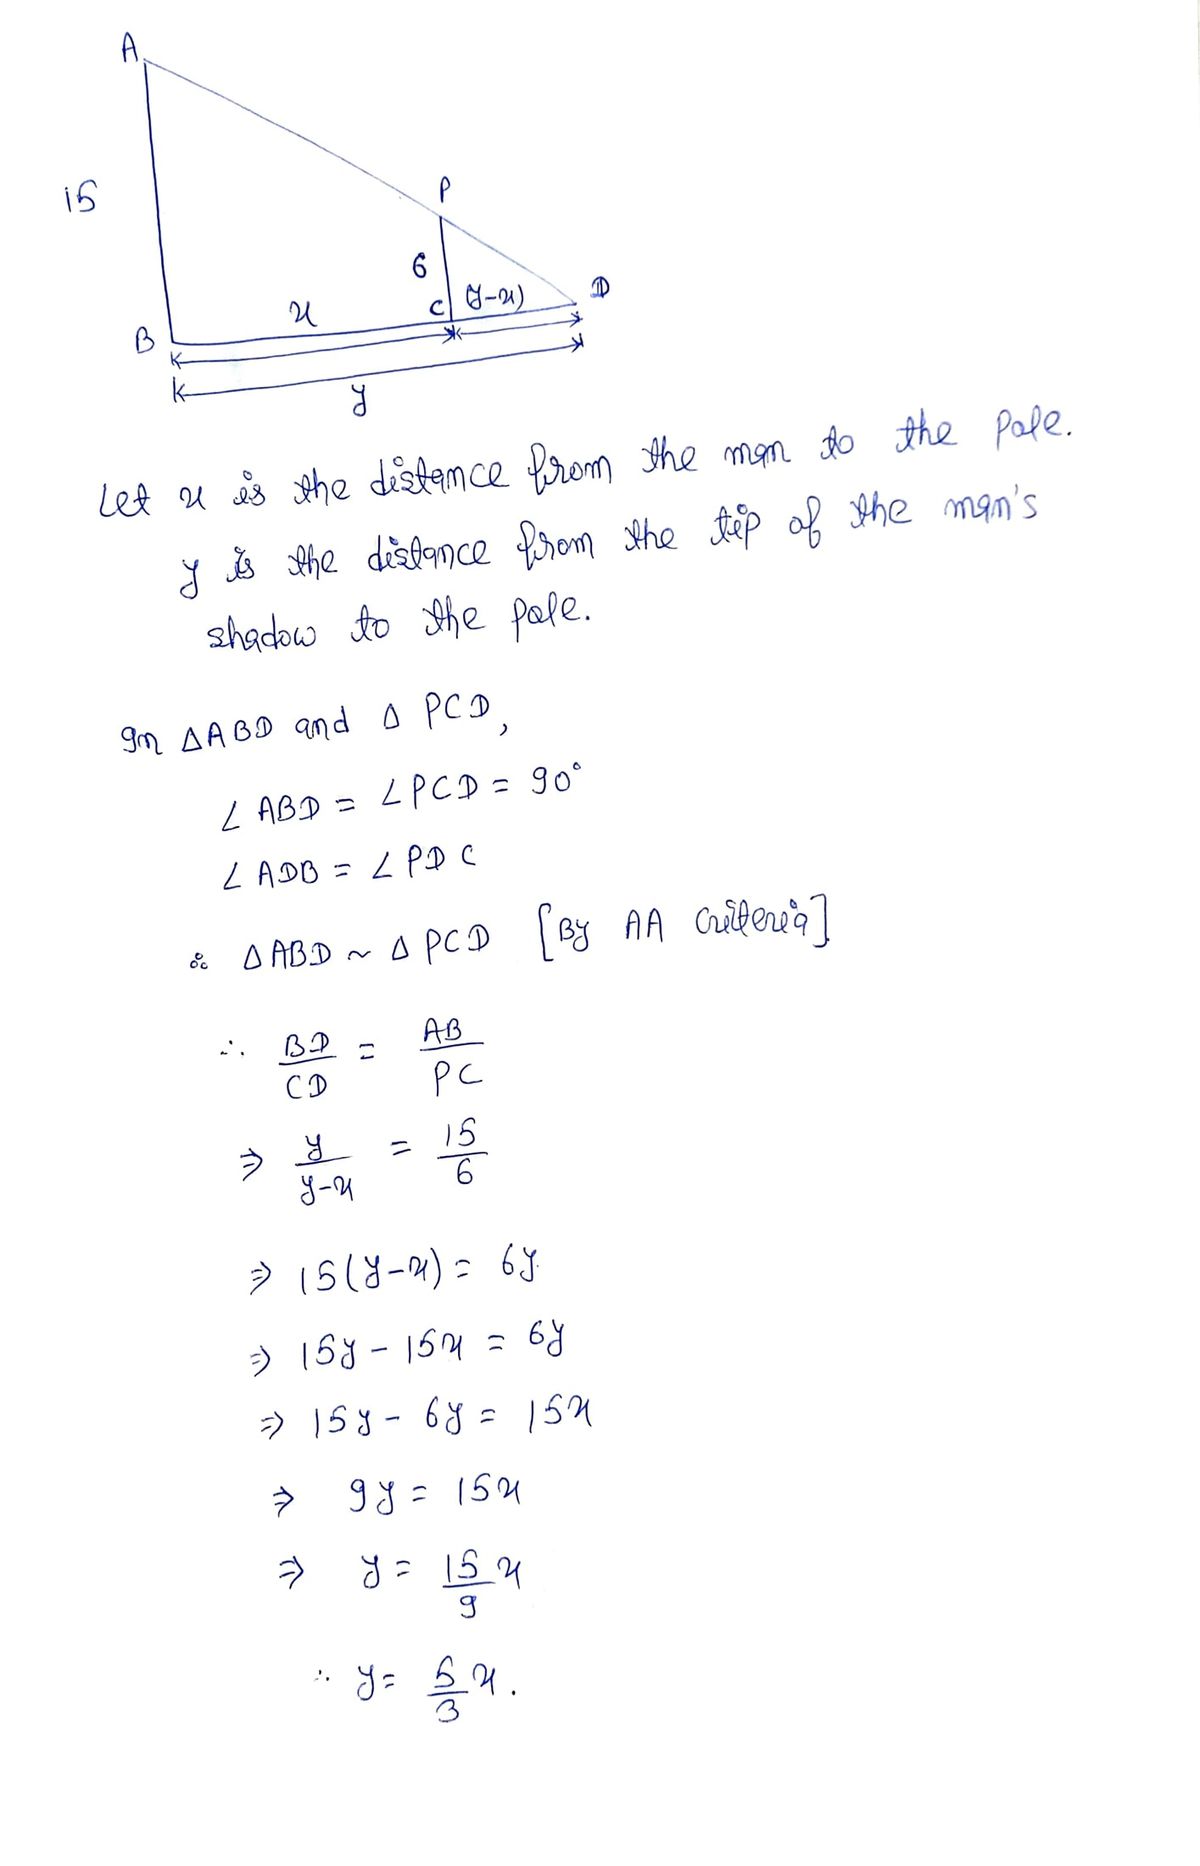 A
15
P
6
x
C (y-x) D
B
y
Let x is the distance from the man to the pole.
y is the distance from the tip of the man's
shadow to the pole.
In △ABD and △ PCD,
∠ ABD = ∠PCD = 90°
∠ ADB = ∠ PDC
∴ △ABD ~ △ PCD [By AA criteria]
∴ BD/CD = AB/PC
⇒ y/(y-x) = 15/6
⇒ 15(y-x) = 6y
⇒ 15y - 15x = 6y
⇒ 15y - 6y = 15x
⇒ 9y = 15x
⇒ y = 15/9 x
∴ y = 5/3 x.